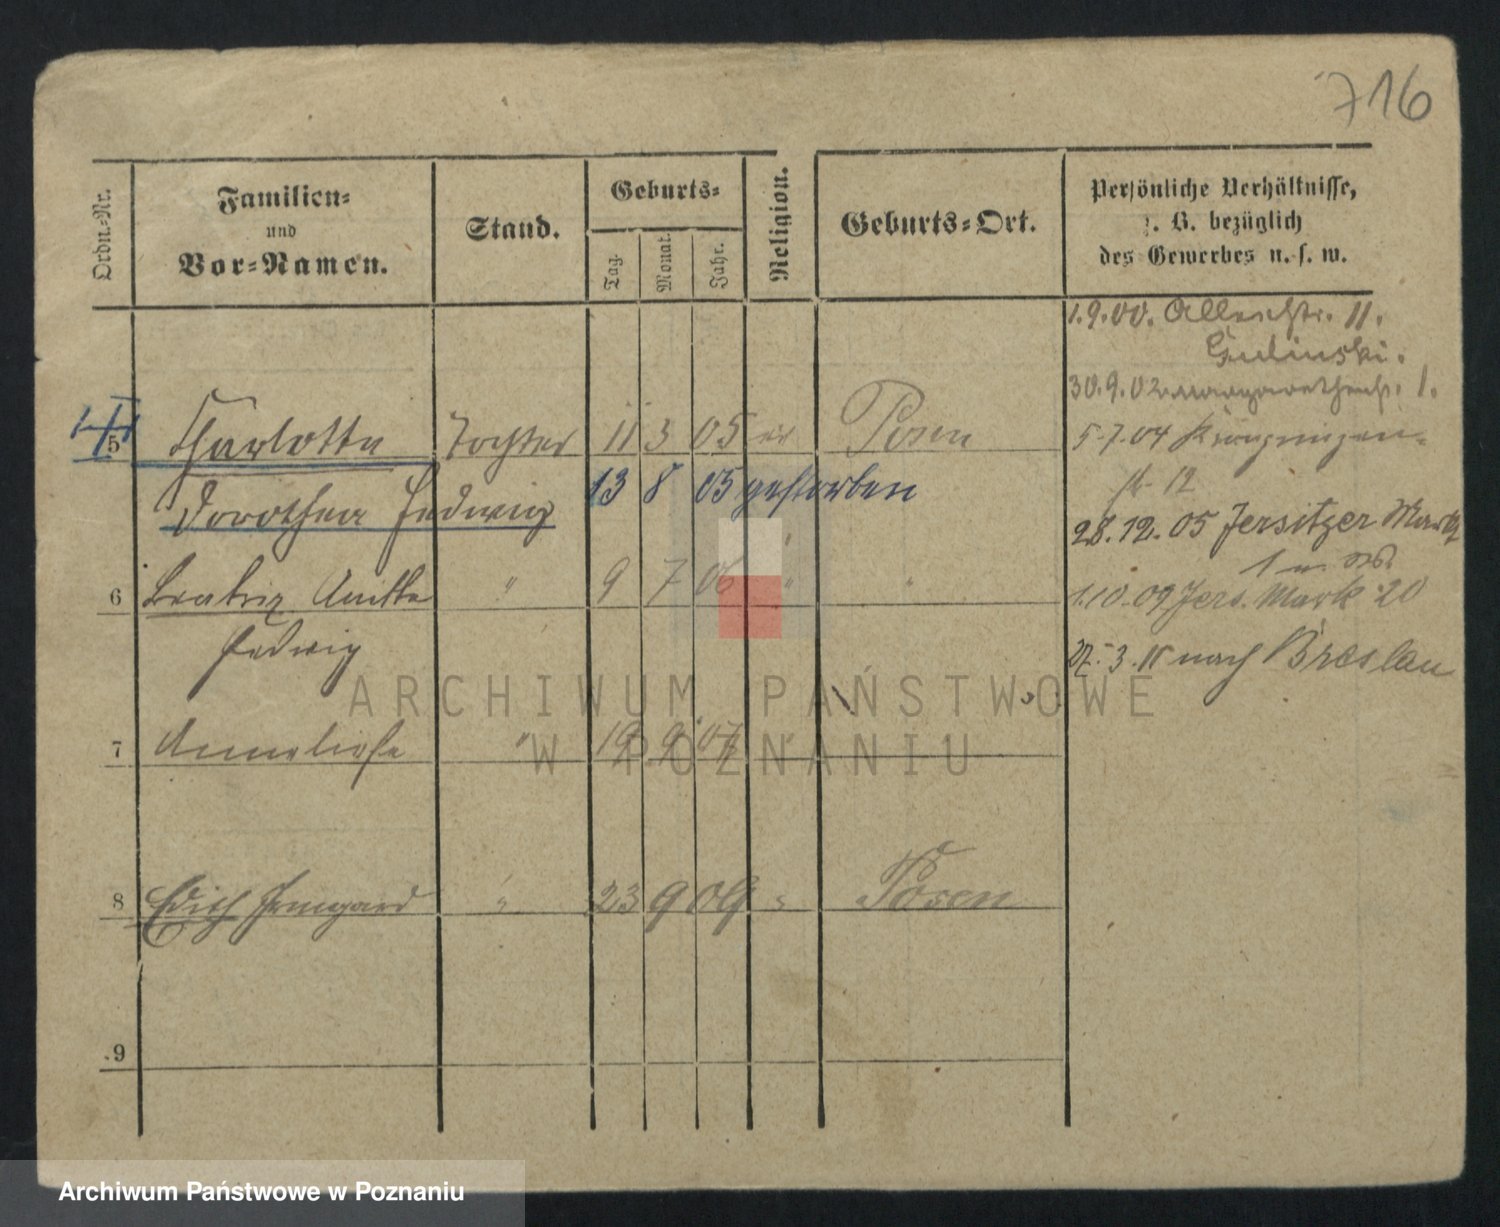 716
Ordn.-Nr.
Familien-
und
Vor-Namen.
Stand.
Geburts-
Tag.
Monat.
Jahr.
Religion.
Geburts-Ort.
Persönliche Verhältnisse,
z. B. bezüglich
des Gewerbes u. s. w.
1.9.00. 11.
Gulinski.
30.9.02 Margarethenstr. 1.
5 Charlotte Tochter 11 3 05 ev Posen
5.7.04
12
Dorothea Hedwig 13 8 05 gestorben
28.12.05 Jersitzer Markt
1
6 Beatrix Anitta " 9 7 06 " "
1.10.09 Jers. Mark 20
Hedwig
27.3.11 nach Breslau
7 Anneliese " 19 9 07 "
8 Edith Irmgard " 23 9 09 " Posen
9
ARCHIWUM PAŃSTWOWE
W POZNANIU
Archiwum Państwowe w Poznaniu